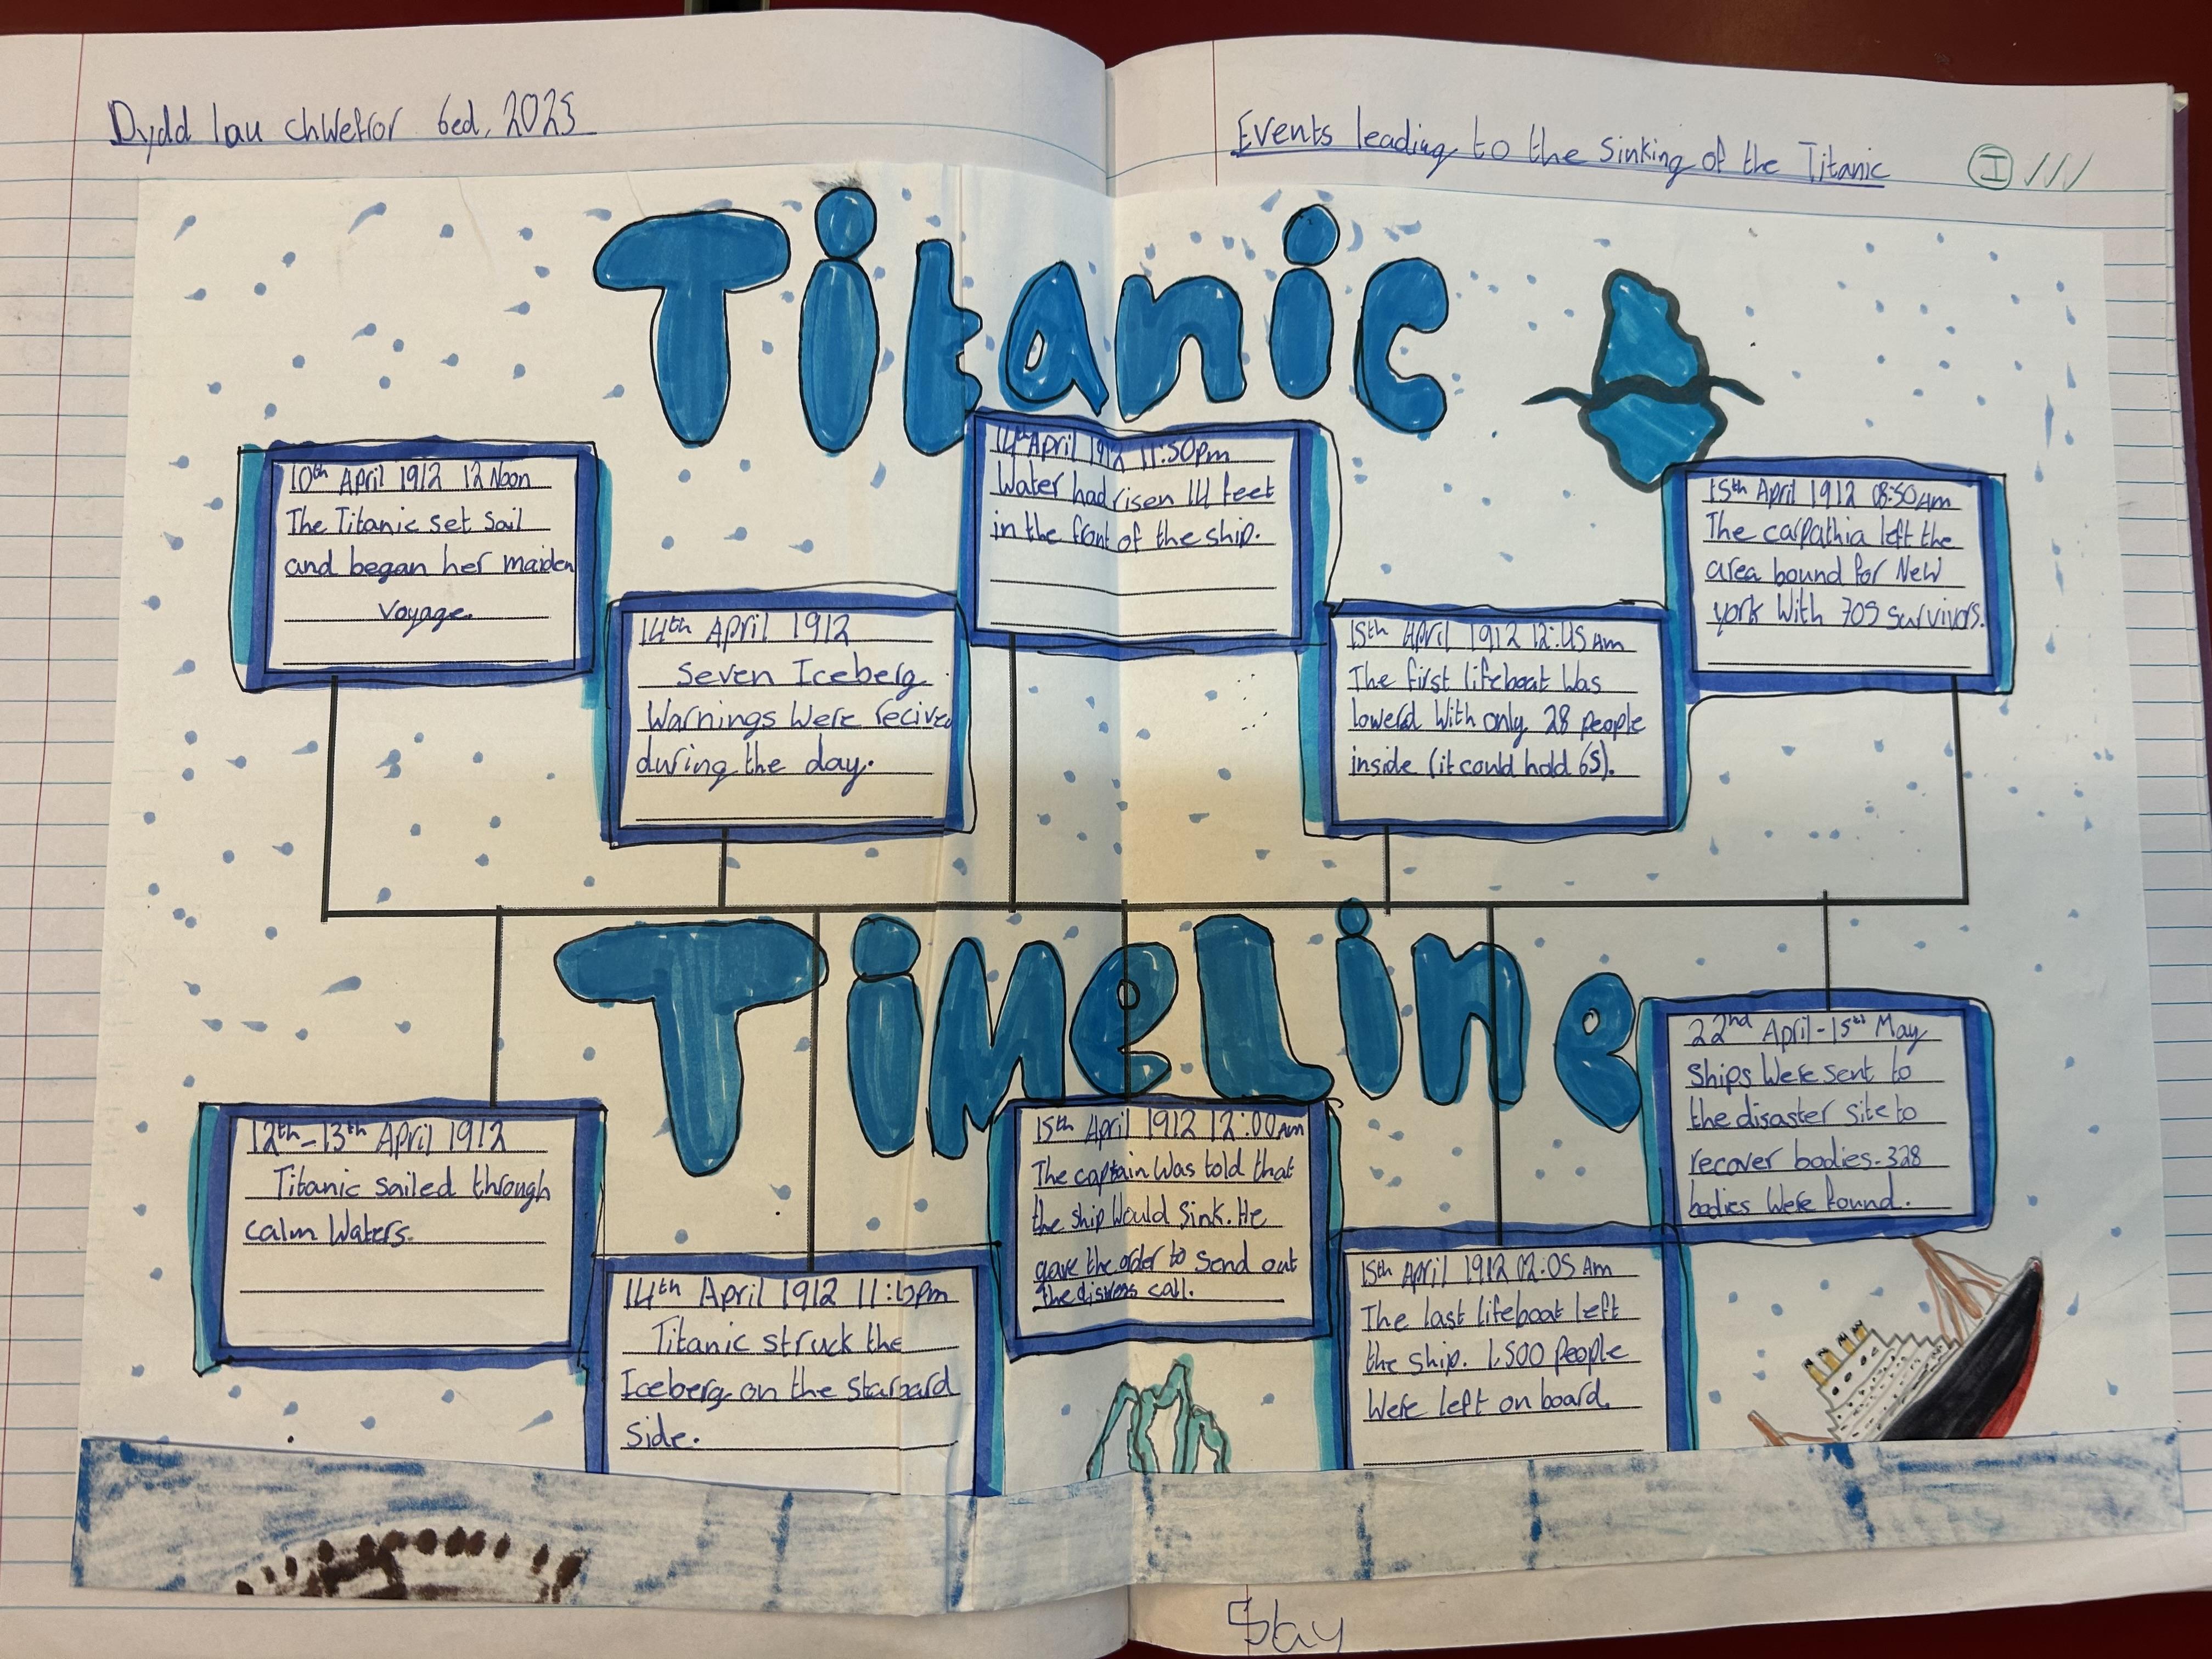 Dydd Iau chwefror 6ed, 2025
Events leading to the sinking of the Titanic
I
Titanic
10th April 1912 12 Noon
The Titanic set sail
and began her maiden
voyage.
12th-13th April 1912
Titanic sailed through
calm waters.
14th April 1912
Seven Iceberg
Warnings Were recived
during the day.
14th April 1912
Titanic struck the
Iceberg on the starbard
side.
14th April 1912 11:50pm
Water had risen 14 feet
in the front of the ship.
15th April 1912 12:00am
The captain was told that
the ship would sink. He
gave the order to send out
the distress call.
15th April 1912 12:45am
The first lifeboat was
lowerd with only 28 people
inside (it could hold 65).
15th April 1912 02:05am
The last lifeboat left
the ship. 1,500 people
were left on board.
15th April 1912 08:50am
The carpathia left the
area bound for New
york with 705 survivors.
22nd April-15th May
ships were sent to
the disaster site to
recover bodies. 328
bodies were found.
TimeLine